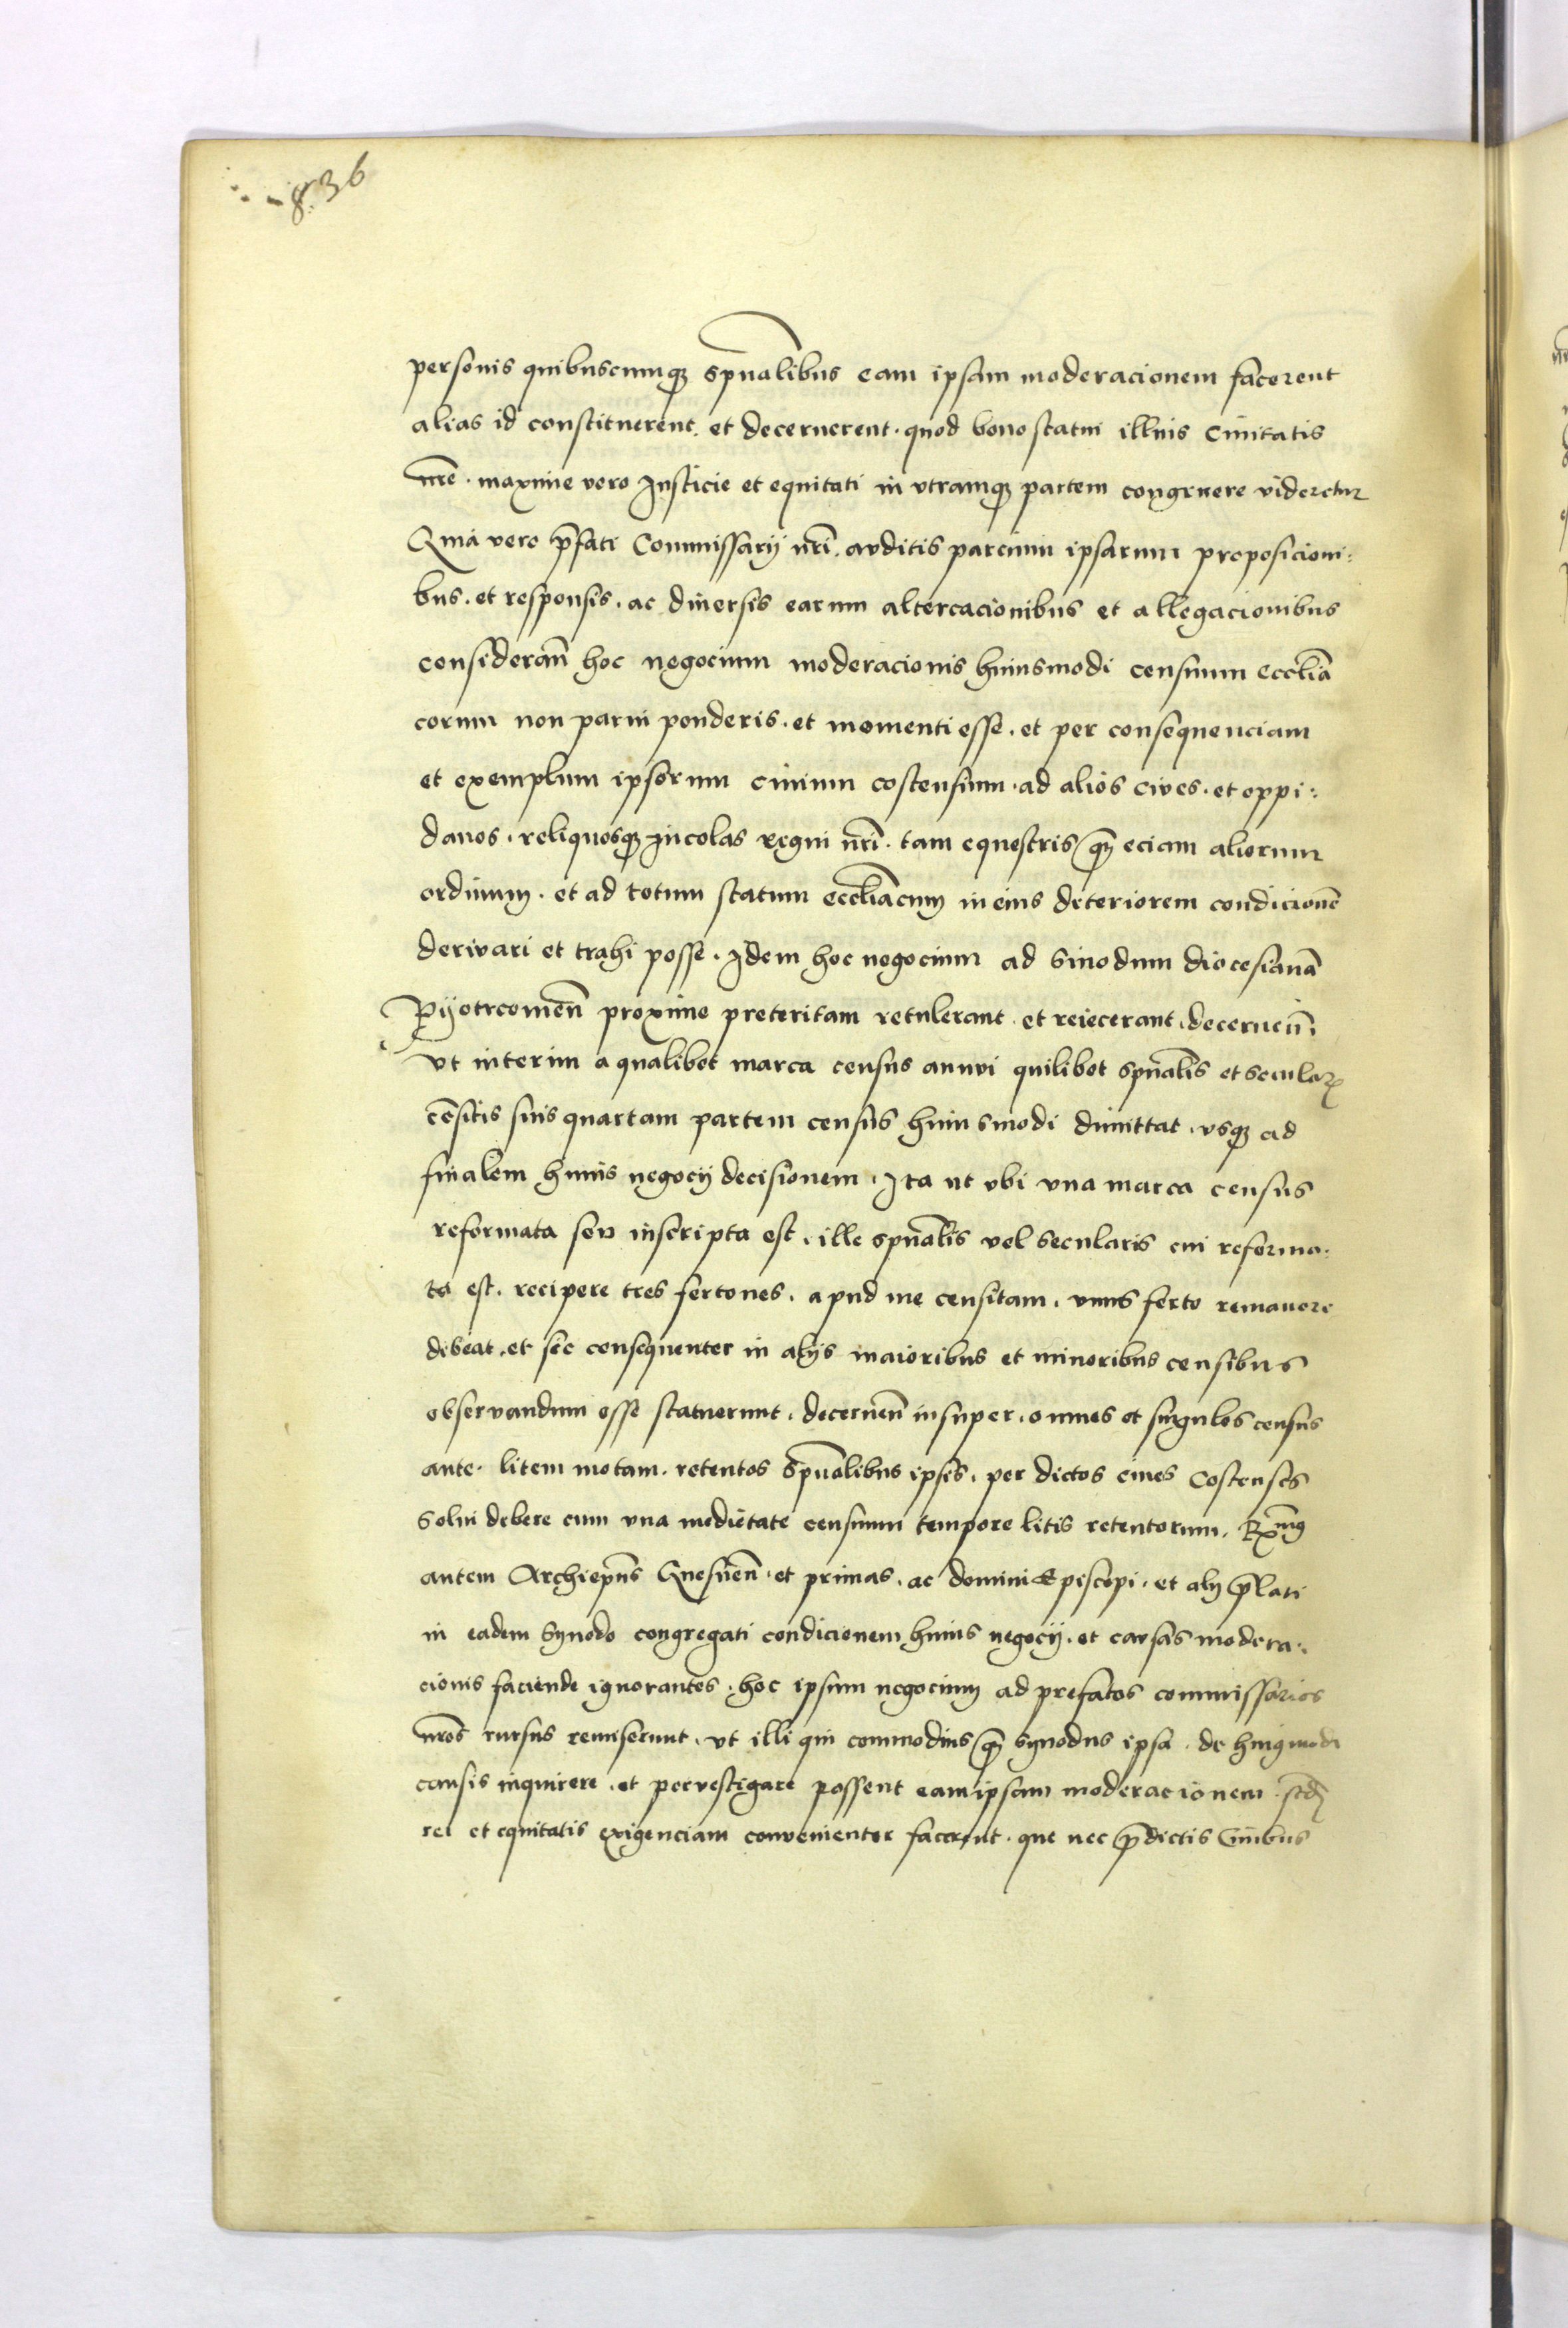 836
personis quibuscumq; spũalibus eam ipsam moderacionem facerent
alias id constituerent et decernerent. quod bono statui illius Ciuitatis
nr̃e. maxime vero Justicie et equitati in vtramq; partem congruere videretur
Quia vero p̃fati Commissarij nr̃i. auditis parcium ipsarum proposicioni:
bus. et responsis. ac diuersis earum altercacionibus et allegacionibus
considerañ hoc negocium moderacionis huiusmodi censuum eccliã
corum non parui ponderis. et momenti esse. et per consequenciam
et exemplum ipsorum ciuium costensium. ad alios cives. et oppi:
danos. reliquosq; Incolas regni nr̃i. tam equestris q̃ eciam aliorum
ordinum. et ad totum statum eccliãcum in eius deteriorem condicionẽ
derivari et trahi posse. Idem hoc negocium ad Sinodum diocesianã
Pyotrcomeñ proxime preteritam retulerant et reiecerant. decerneñ.
vt interim a qualibet marca census annui quilibet spũalis et secular
cẽsitis suis quartam partem census huiusmodi dimittat. vsq; ad
finalem huius negocij decisionem. Ita ut vbi vna marca census
reformata seu inscripta est. ille spũalis vel secularis cui reforma:
ta est. recipere tres fertones. apud me censitam. vnus ferto remanere
debeat. et sic consequenter in alijs maioribus et minoribus censibus
observandum esse statuerunt. decerneñ insuper. omnes et singulos census
ante. litem motam. retentos spũalibus ipsis. per dictos ciues Costenses
Solui debere cum vna medietate censuum tempore litis retentorum. Rx̃mg
autem Archiepũs Gnesneñ. et primas. ac domini Episcopi. et alij p̃lati
in eadem Synodo congregati condicionem huius negocij. et causas modera:
cionis faciende ignorantes. hoc ipsum negocium ad prefatos commissarios
nr̃os rursus remiserunt. vt illi qui commodius q̃ synodus ipsa. de huigmodi
causis inquirere. et pervestigare possent eam ipsam moderacionem. scd̃
rei et equitatis exigenciam convenienter facerent. que nec p̃dictis Ciuibus